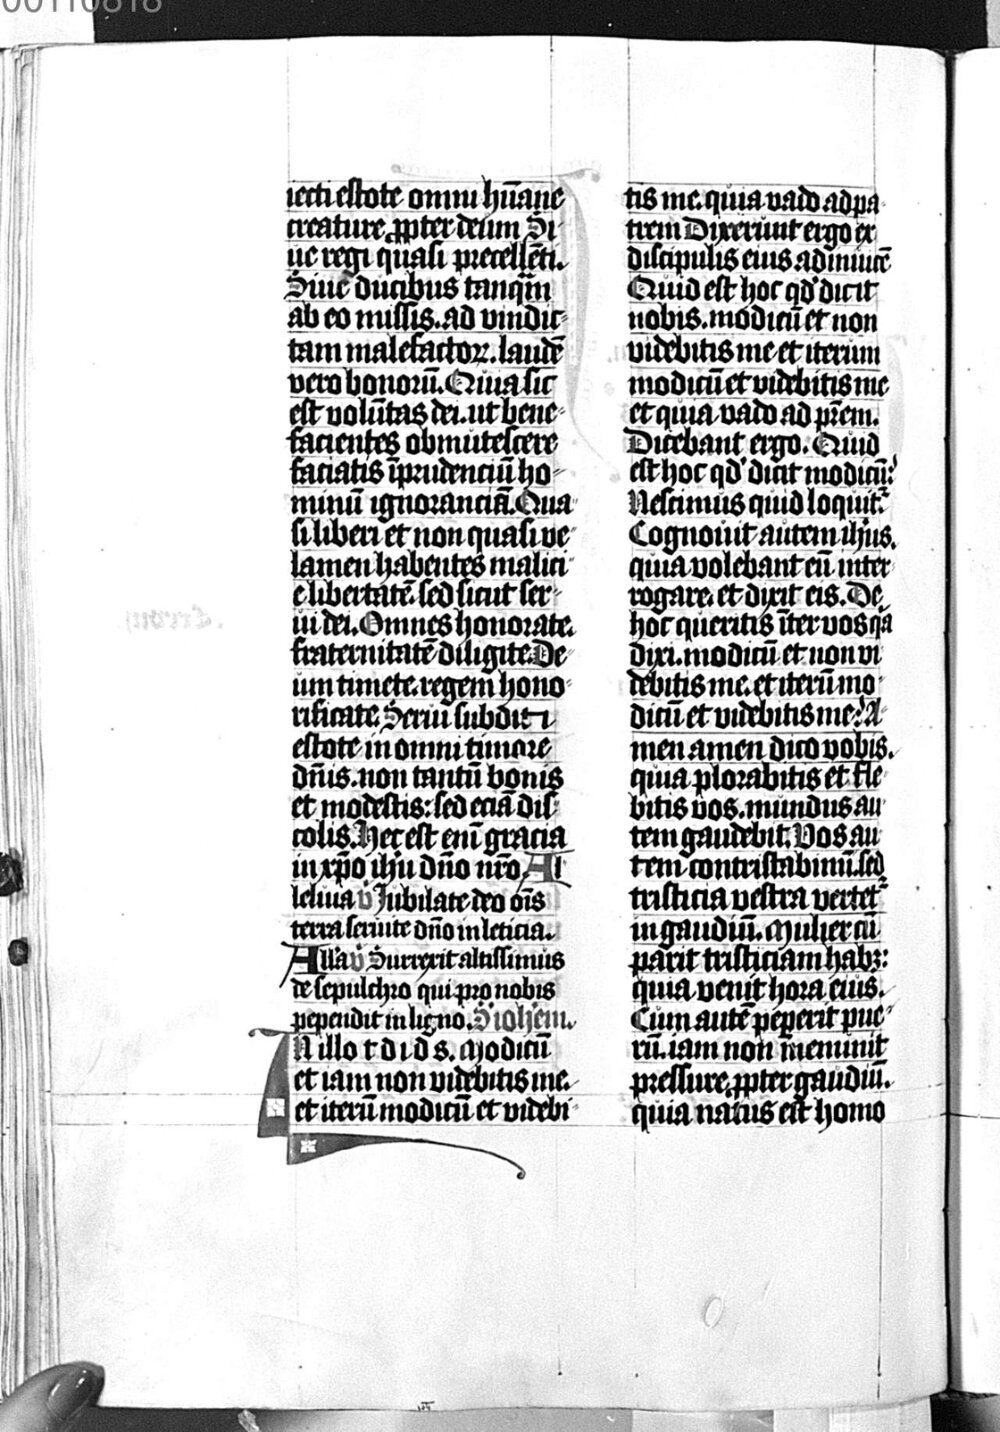 00110818
iecti estote omni hūane
creature ꝓpter deum Si
ue regi quasi precellēti.
Siue ducibus tanqm̄
ab eo missis. ad vindic-
tam malefactoꝝ. laudē
vero bonorū. Quia sic
est volūtas dei. ut bene-
facientes obmutescere
faciatis īprudenciū ho-
minū ignoranciā. Qua-
si liberi et non quasi ve-
lamen habentes malici
e libertatē. sed sicut ser-
ui dei. Omnes honorate.
fraternitatē diligite. De-
um timete. regem hono-
rificate. Serui subditi
estote in omni timore
dn̄is. non tantū bonis
et modestis: sed eciā dis-
colis. Hec est enī gracia
in xp̄o ih̄u dn̄o nr̄o. Al
leluia v̄ Jubilate deo om̄s
terra seruite dn̄o in leticia.
All'a v̄ Surrexit altissimus
de sepulchro qui pro nobis
pependit in ligno. S ioh̄em.
N illo t d i d s. Modicū
et iam non videbitis me.
et iterū modicū et videbi-
tis me. quia vado ad pa-
trem Dixerunt ergo ex
discipulis eius adinuicē
Quid est hoc qd' dicit
nobis. modicū et non
videbitis me et iterum
modicū et videbitis me
et quia vado ad pr̄em.
Dicebant ergo. Quid
est hoc qd' dicit modicū?
Nescimus quid loquit᷑
Cognouit autem ih̄us.
quia volebant eū inter-
rogare. et dixit eis. De
hoc queritis īter vos qa
dixi. modicū et non vi
debitis me. et iterū mo-
dicū et videbitis me? A-
men amen dico vobis.
quia plorabitis et fle-
bitis vos. mundus au
tem gaudebit. Vos au
tem contristabimī. sed
tristicia vestra vertet᷑
in gaudiū. Mulier cū
parit tristiciam habꝫ:
quia venit hora eius.
Cum autē pepererit pue-
rū. iam non meminit
pressure. ꝓpter gaudiū.
quia natus est homo